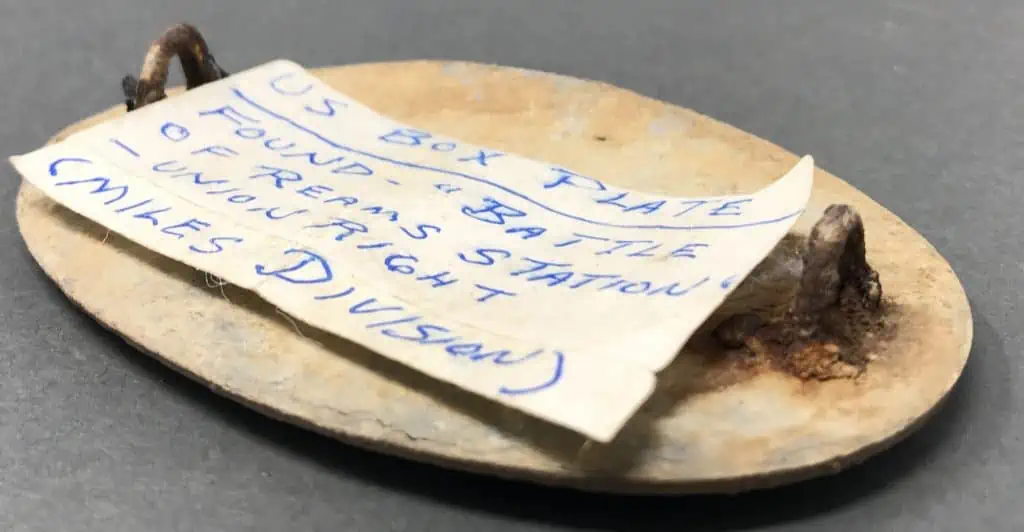 US BOX PLATE
FOUND - "BATTLE
OF REAMS STATION"
- UNION RIGHT
(MILES DIVISION)